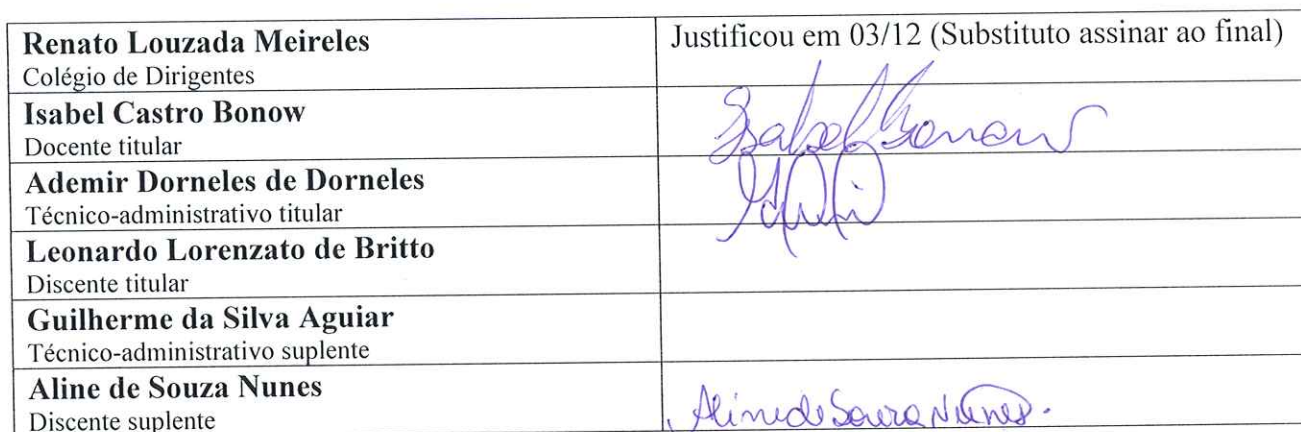 Renato Louzada Meireles
Justificou em 03/12 (Substituto assinar ao final)
Colégio de Dirigentes
Isabel Castro Bonow
Isabel Bonow
Docente titular
Ademir Dorneles de Dorneles
Técnico-administrativo titular
Leonardo Lorenzato de Britto
Discente titular
Guilherme da Silva Aguiar
Técnico-administrativo suplente
Aline de Souza Nunes
Discente suplente
Aline de Souza Nunes.